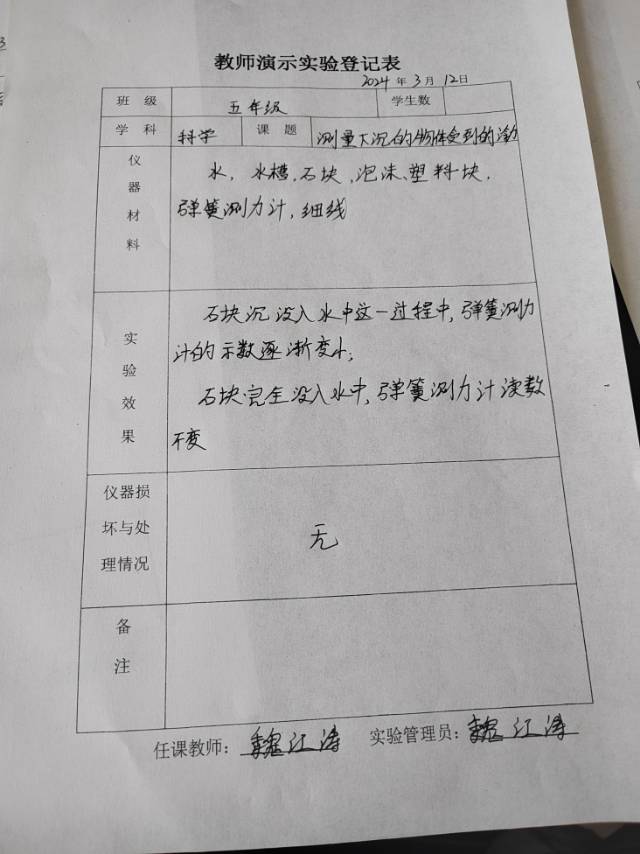 教师演示实验登记表
2024年3月12日
班级 五年级 学生数
学科 科学 课题 测量下沉的物体受到的浮力
仪器材料 水，水槽、石块、泡沫、塑料块、
弹簧测力计，细线
实验效果 石块沉没入水中这一过程中，弹簧测力
计的示数逐渐变小；
石块完全没入水中，弹簧测力计读数
不变
仪器损坏与处理情况 无
备注
任课教师：魏江涛 实验管理员：魏江涛